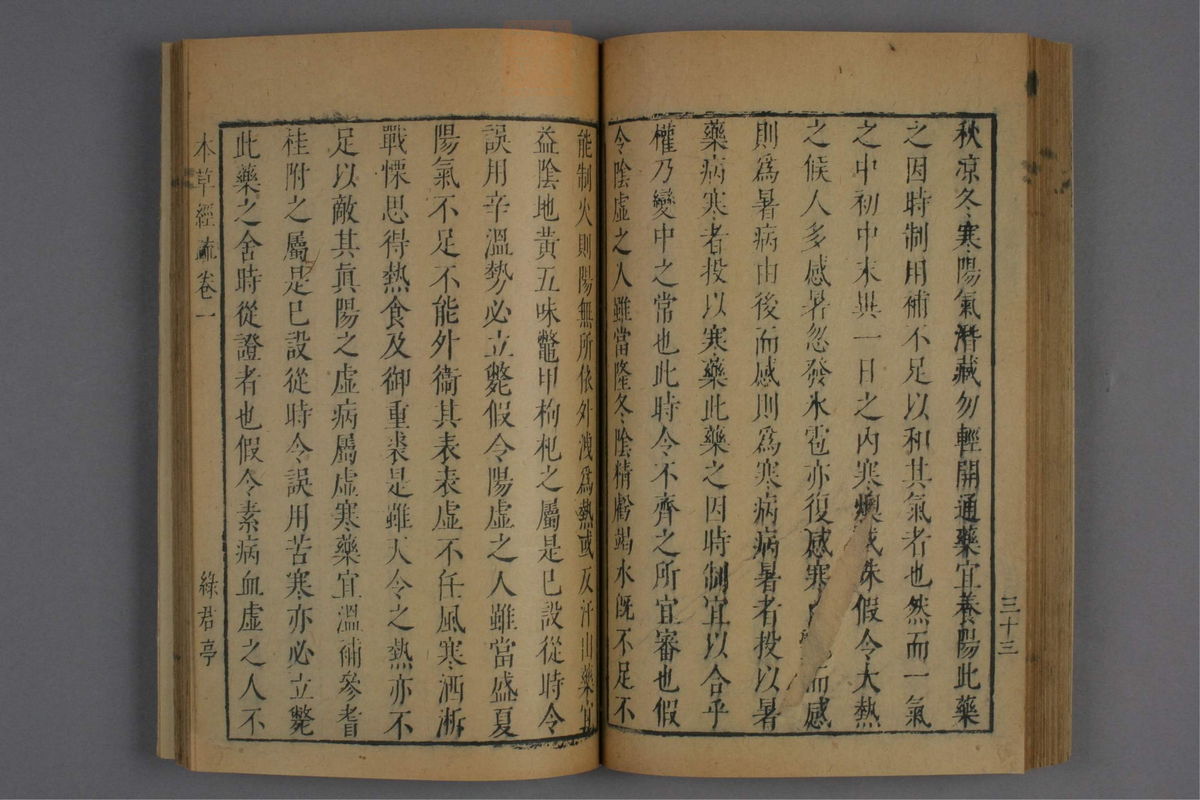 秋凉冬寒陽氣潛藏勿輕開通藥宜養陽此藥
之因時制用補不足以和其氣者也然而一氣
之中初中末異一日之內寒燠或殊假令大熱
之候人多感暑忽發氷雹亦復感寒由先而感
則爲暑病由後而感則爲寒病病暑者投以暑
藥病寒者投以寒藥此藥之因時制宜以合乎
權乃變中之常也此時令不齊之所宜審也假
令陰虛之人雖當隆冬陰精虧竭水旣不足不
三十三
能制火則陽無所依外洩爲熱或反汗出藥宜
益陰地黃五味鼈甲枸杞之屬是已設從時令
誤用辛溫勢必立斃假令陽虛之人雖當盛夏
陽氣不足不能外衞其表表虛不任風寒洒淅
戰慄思得熱食及御重裘是雖天令之熱亦不
足以敵其眞陽之虛病屬虛寒藥宜溫補參耆
桂附之屬是已設從時令誤用苦寒亦必立斃
此藥之舍時從證者也假令素病血虛之人不
本草經疏卷一
綠君亭